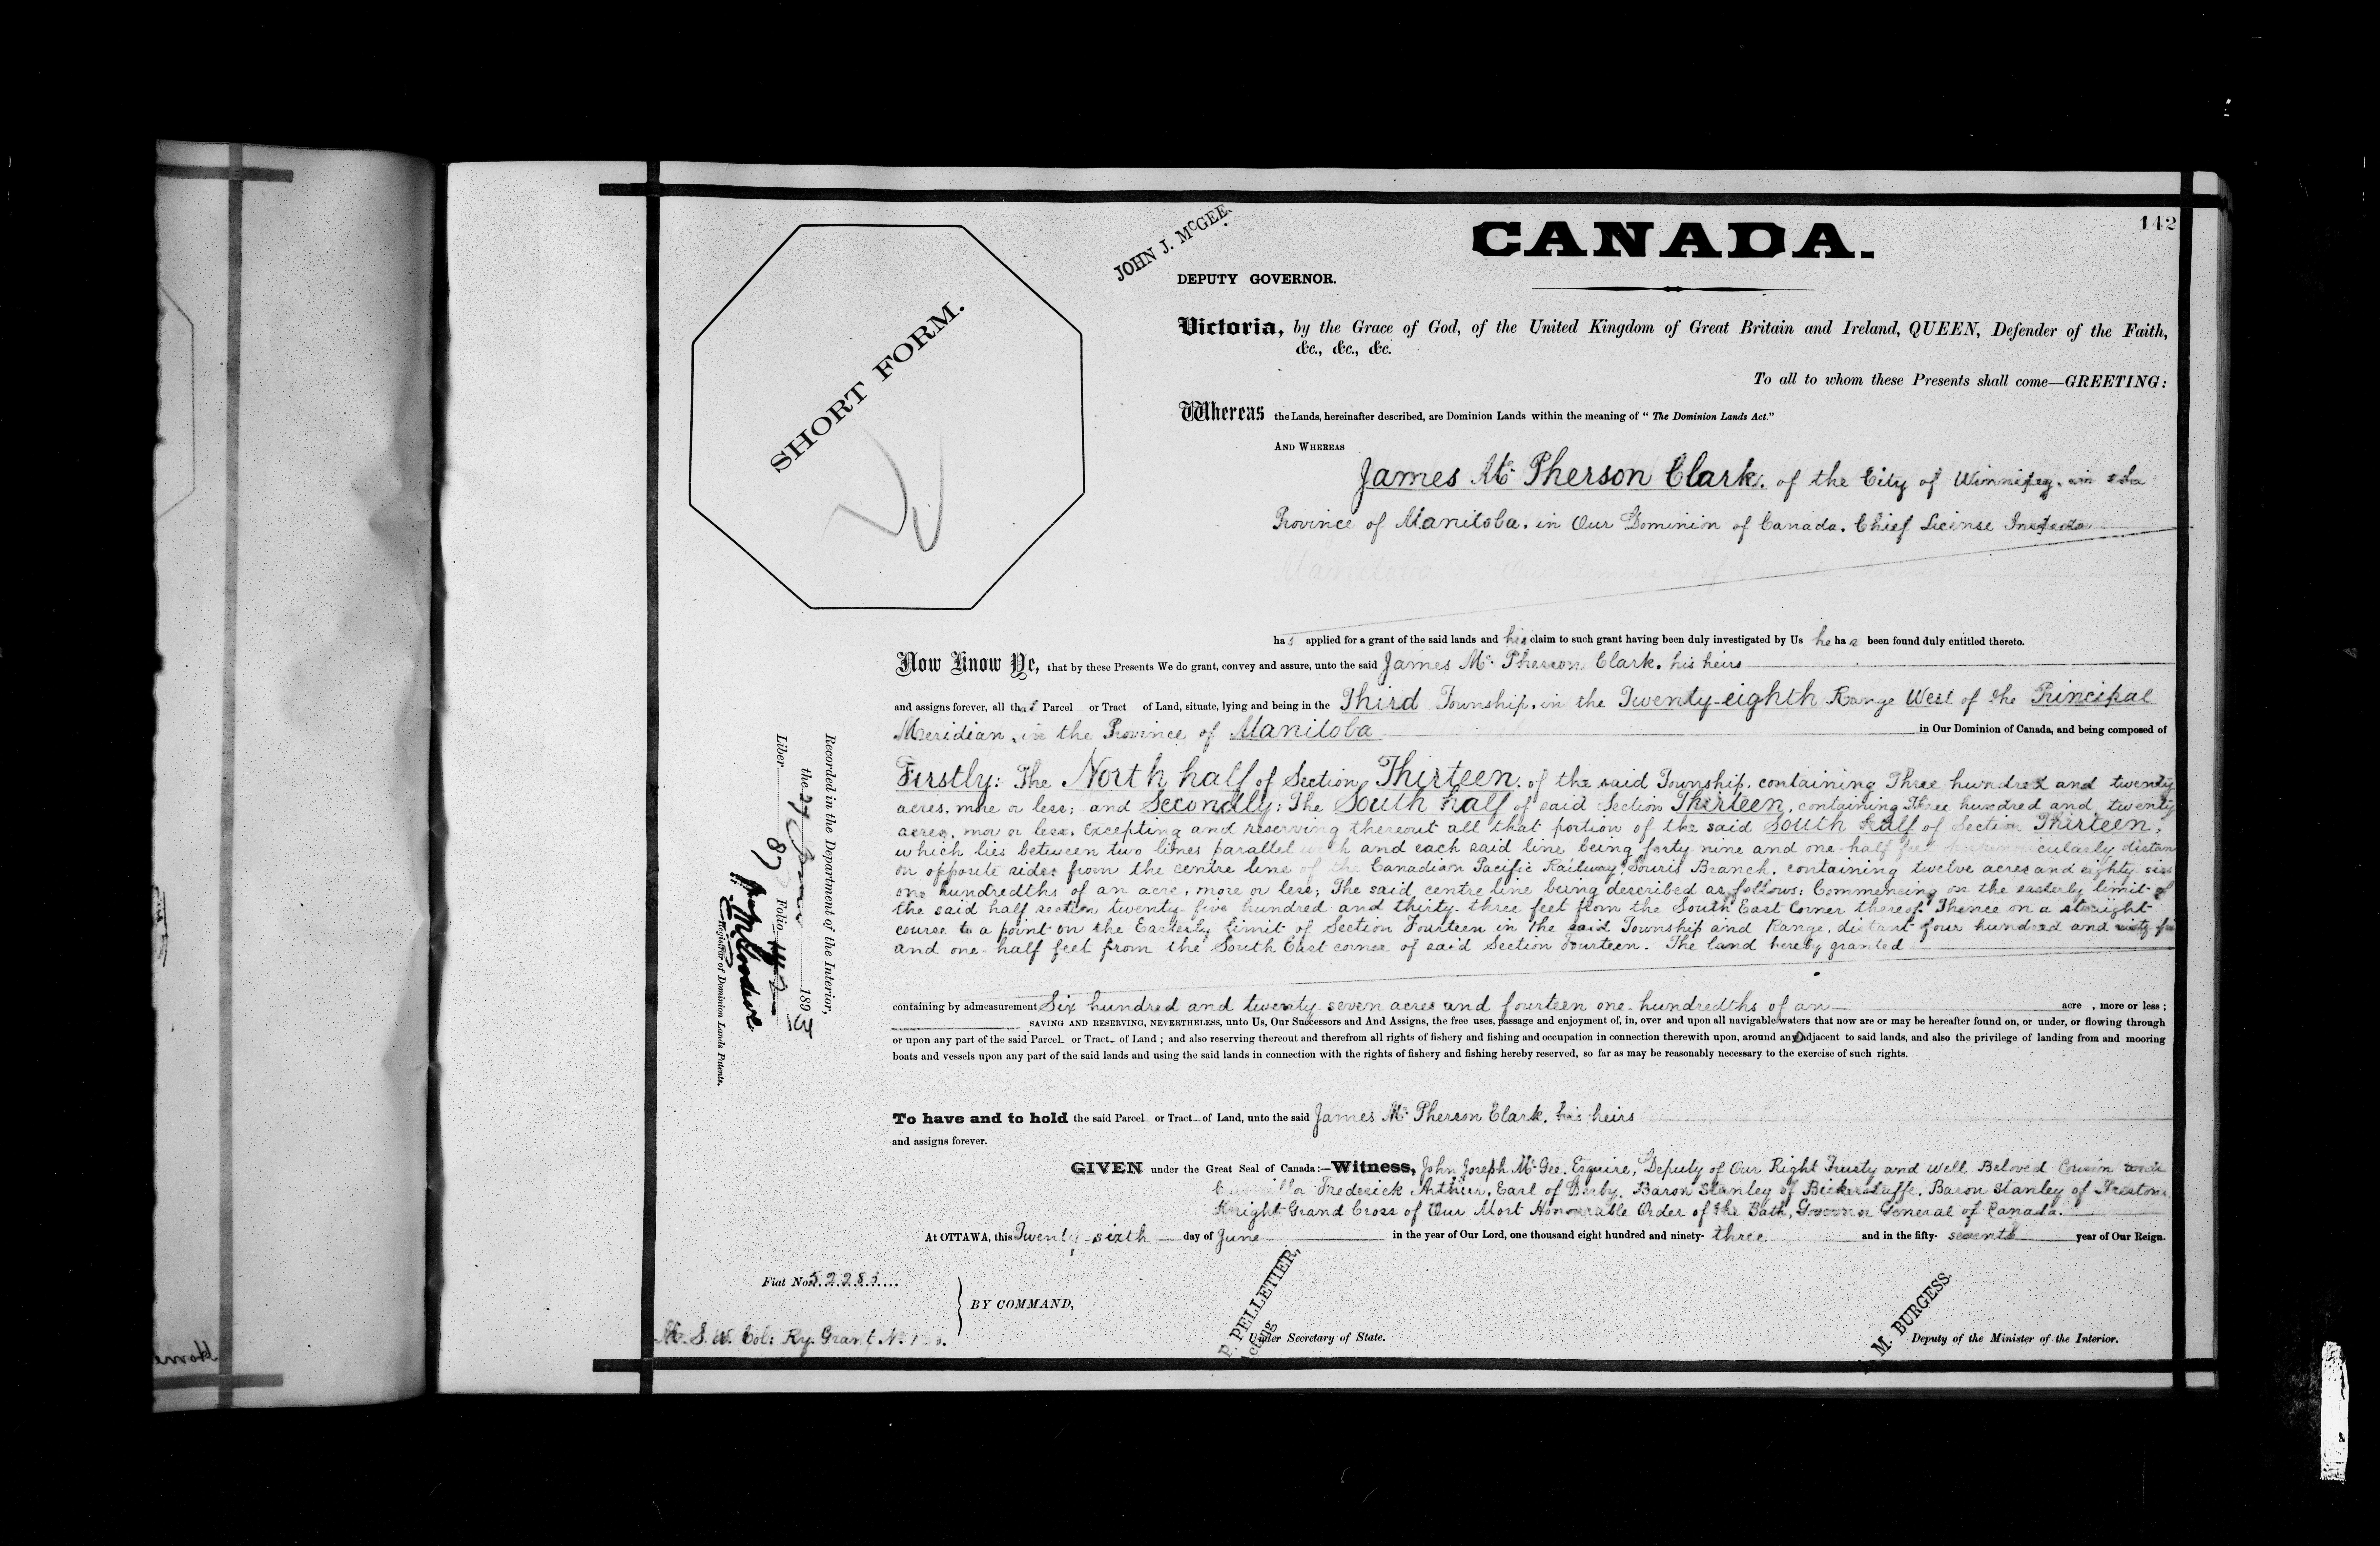 142
CANADA.
JOHN J. McGEE.
DEPUTY GOVERNOR.
SHORT FORM.
Victoria, by the Grace of God, of the United Kingdom of Great Britain and Ireland, QUEEN, Defender of the Faith,
&c., &c., &c.
To all to whom these Presents shall come—GREETING:
Whereas the Lands, hereinafter described, are Dominion Lands within the meaning of "The Dominion Lands Act."
AND WHEREAS
James Mc Pherson Clark. of the City of Winnipeg. in the
Province of Manitoba. in Our Dominion of Canada. Chief License Inspector
has applied for a grant of the said lands and his claim to such grant having been duly investigated by Us he has been found duly entitled thereto.
Now Know Ye, that by these Presents We do grant, convey and assure, unto the said James Mc. Pherson Clark. his heirs
and assigns forever, all that Parcel or Tract of Land, situate, lying and being in the Third Township. in the Twenty-eighth Range West of the Principal
Meridian, in the Province of Manitoba in Our Dominion of Canada, and being composed of
Firstly: The North half of Section Thirteen. of the said Township. containing Three hundred and twenty
acres. more or less; and Secondly: The South half of said Section Thirteen, containing Three hundred and twenty
acres. mor or less. Excepting and reserving thereout all that portion of the said South half of Section Thirteen,
which lies between two lines parallel with and each said line being forty nine and one-half feet cularly distan
on opposite sides from the centre line of the Canadian Pacific Railway: Souris Branch. containing twelve acres and eighty-six
one hundredths of an acre, more or less; The said centre line being described as follows: Commencing on the easterly limit of
the said half section twenty-five hundred and thirty-three feet from the South East Corner thereof. Thence on a straight
course to a point on the Easterly limit of Section Fourteen in the said Township and Range, distant four hundred and
and one-half feet from the South East corner of said Section Fourteen. The land hereby granted
containing by admeasurement Six hundred and twenty seven acres and fourteen one-hundredths of an acre , more or less;
SAVING AND RESERVING, NEVERTHELESS, unto Us, Our Successors and And Assigns, the free uses, passage and enjoyment of, in, over and upon all navigable waters that now are or may be hereafter found on, or under, or flowing through
or upon any part of the said Parcel or Tract of Land; and also reserving thereout and therefrom all rights of fishery and fishing and occupation in connection therewith upon, around and adjacent to said lands, and also the privilege of landing from and mooring
boats and vessels upon any part of the said lands and using the said lands in connection with the rights of fishery and fishing hereby reserved, so far as may be reasonably necessary to the exercise of such rights.
To have and to hold the said Parcel or Tract of Land, unto the said James Mc Pherson Clark. his heirs
and assigns forever.
GIVEN under the Great Seal of Canada:—Witness, John Joseph McGee. Esquire, Deputy of Our Right Trusty and Well Beloved Cousin and
Councillor Frederick Arthur, Earl of Derby. Baron Stanley of Bickerstaffe. Baron Stanley of Preston,
Knight Grand Cross of Our Most Honourable Order of the Bath, Governor General of Canada.
At OTTAWA, this Twenty-sixth day of June in the year of Our Lord, one thousand eight hundred and ninety-three and in the fifty-seventh year of Our Reign.
Recorded in the Department of the Interior,
the 27 June 189
Liber 87 Folio 142
Registrar of Dominion Lands Patents.
Fiat No. 52283
BY COMMAND,
P. PELLETIER,
Acting
Under Secretary of State.
M. BURGESS.
Deputy of the Minister of the Interior.
S. W. Col: Ry. Grant No.
Home